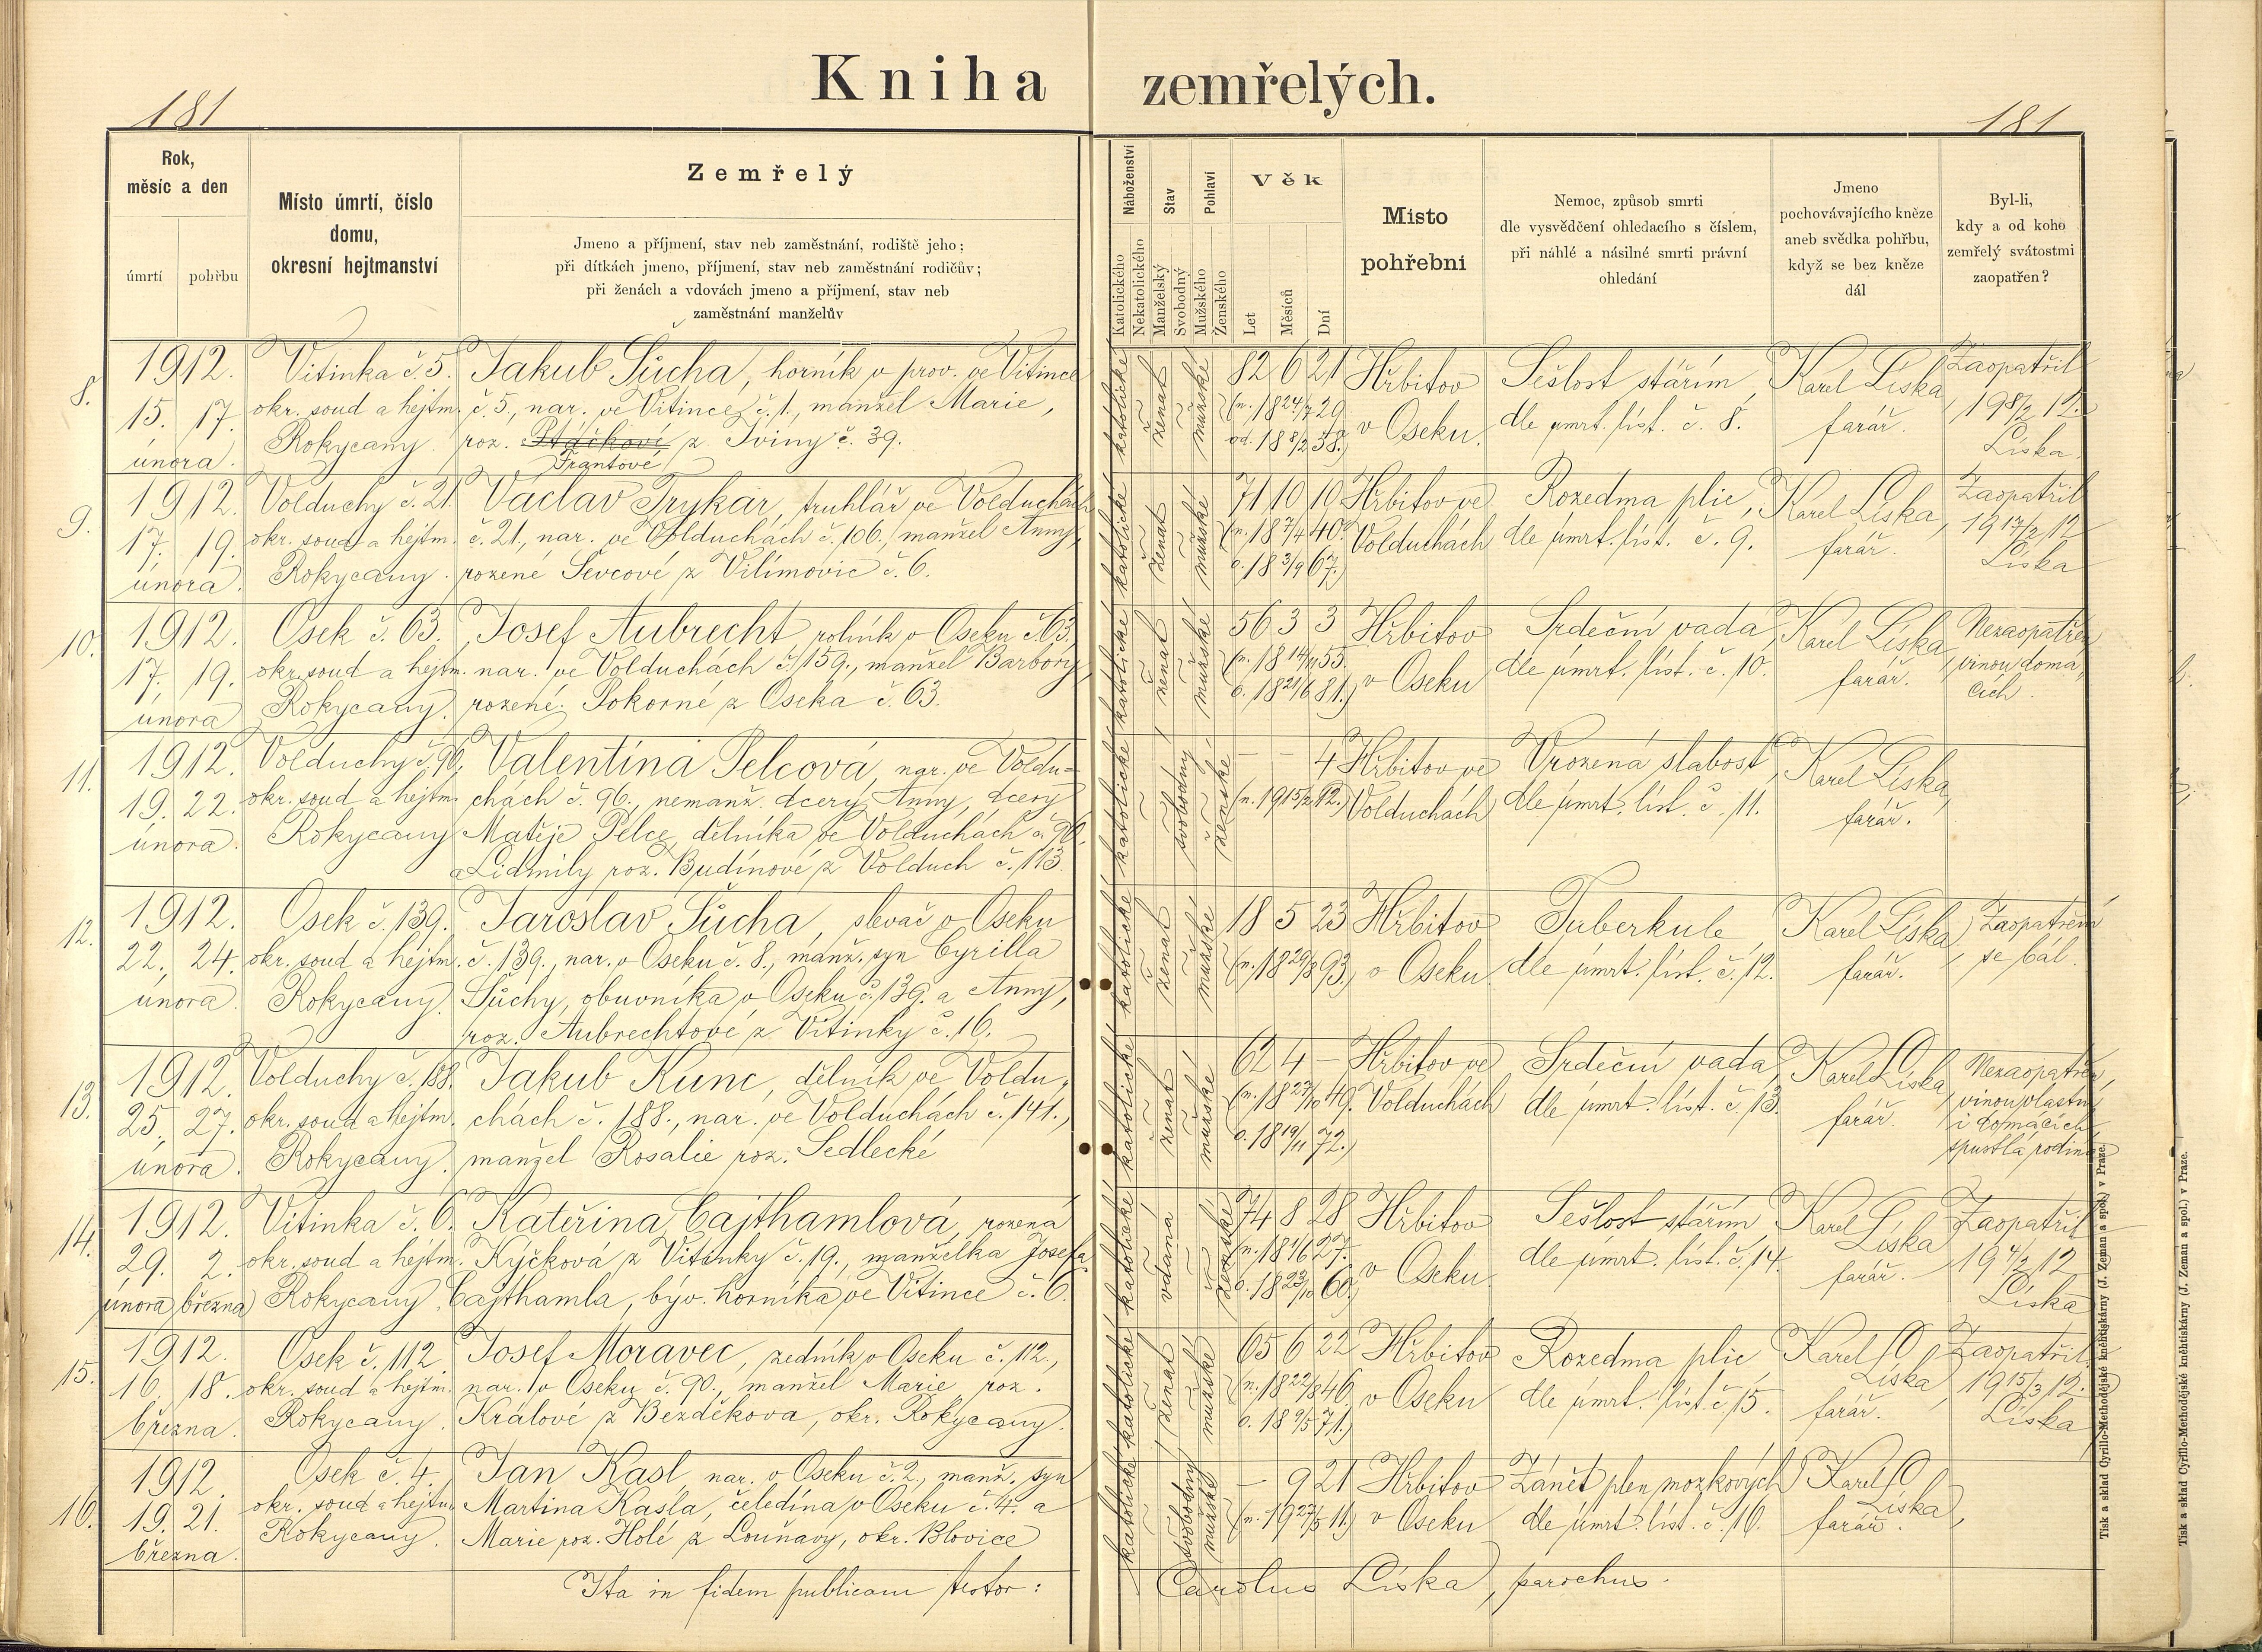 Kniha zemřelých.
181
181
Rok,
měsíc a den
úmrtí
pohřbu
Místo úmrtí, číslo
domu,
okresní hejtmanství
Zemřelý
Jmeno a příjmení, stav neb zaměstnání, rodiště jeho;
při dítkách jmeno, příjmení, stav neb zaměstnání rodičův;
při ženách a vdovách jmeno a příjmení, stav neb
zaměstnání manželův
Náboženství
Katolického
Nekatolického
Stav
Manželský
Svobodný
Pohlaví
Mužského
Ženského
Věk
Let
Měsíců
Dní
Místo
pohřební
Nemoc, způsob smrti
dle vysvědčení ohledacího s číslem,
při náhlé a násilné smrti právní
ohledání
Jmeno
pochovávajícího kněze
aneb svědka pohřbu,
když se bez kněze
dál
Byl-li,
kdy a od koho
zemřelý svátostmi
zaopatřen?
8.
1912. Vitinka č. 5. Jakub Šůcha, horník v prov. ve Vitince
15. 17. okr. soud a hejtm. č. 5., nar. ve Vitince č. 1., manžel Marie,
února. Rokycany. roz. Ptáčkové z Sviny č. 39.
Frantové
katolické ženat mužské
82 6 21 Hřbitov Sešlost stářím, Karel Líška, Zaopatřil
(n. 1824/7 29. v Oseku. dle úmrt. list. č. 8. farář. 198/2 12.
od. 188/2 58.) Líška.
9.
1912. Volduchy č. 21. Václav Trykar, truhlář ve Volduchách
17. 19. okr. soud a hejtm. č. 21., nar. ve Volduchách č. 106., manžel Anny,
února. Rokycany. rozené Ševcové z Vilímovic č. 6.
katolické ženat mužské
71 10 10 Hřbitov ve Rozedma plic, Karel Líška, Zaopatřil
(n. 187/4 40. Volduchách dle úmrt. list. č. 9. farář. 1917/2 12
o. 183/9 67.) Líška
10.
1912. Osek č. 63. Josef Aubrecht, rolník v Oseku č. 63.
17. 19. okr. soud a hejtm. nar. ve Volduchách č. 159., manžel Barbory,
února Rokycany. rozené Pokorné z Oseka č. 63.
katolické ženat mužské
56 3 3 Hřbitov Srdeční vada, Karel Líška, Nezaopatřen,
(n. 1814/11 55. v Oseku dle úmrt. list. č. 10. farář. vinou domá
o. 1821/6 81.) cích.
11.
1912. Volduchy č. 96. Valentina Pelcová, nar. ve Voldu-
19. 22. okr. soud a hejtm. chách č. 96., nemanž. dcery Anny, dcery
února. Rokycany Matěje Pelce, dělníka ve Volduchách č. 96.
a Lidmily roz. Budínové z Volduch č. 113.
katolické svobodný ženské
– – 4 Hřbitov ve Vrozená slabost, Karel Líška,
(n. 1915/2 12.) Volduchách dle úmrt. list. č. 11. farář.
12.
1912. Osek č. 139. Jaroslav Šůcha, slevač v Oseku
22. 24. okr. soud a hejtm. č. 139., nar. v Oseku č. 8., manž. syn Cyrilla
února. Rokycany. Šůchy, obuvníka v Oseku č. 139. a Anny,
roz. Aubrechtové z Vitinky č. 16.
katolické ženat mužské
18 5 23 Hřbitov Tuberkule Karel Líška, Zaopatření
(n. 1829/8 93.) v Oseku dle úmrt. list. č. 12. farář. se bál.
13.
1912. Volduchy č. 188. Jakub Kunc, dělník ve Voldu-
25. 27. okr. soud a hejtm. chách č. 188., nar. ve Volduchách č. 141.,
února. Rokycany. manžel Rosalie roz. Sedlecké
katolické ženat mužské
62 4 – Hřbitov ve Srdeční vada, Karel Líška, Nezaopatřen,
(n. 1827/10 49. Volduchách dle úmrt. list. č. 13. farář. vinou vlastní
o. 1819/11 72.) i domácích,
spustlá rodina.
14.
1912. Vitinka č. 6. Kateřina Cajthamlová, rozená
29. 2. okr. soud a hejtm. Kýčková z Vitinky č. 19., manželka Josefa
února března Rokycany. Cajthamla, býv. horníka ve Vitince č. 6.
katolické vdaná ženské
74 8 28 Hřbitov Sešlost stářím Karel Líška Zaopatřil
(n. 181/6 27. v Oseku. dle úmrt. list. č. 14. farář. 194/2 12
o. 1823/10 60.) Líška
15.
1912. Osek č. 112. Josef Moravec, zedník v Oseku č. 112.,
16. 18. okr. soud a hejtm. nar. v Oseku č. 90., manžel Marie, roz.
března. Rokycany. Králové z Bezděkova, okr. Rokycany.
katolické ženat mužské
65 6 22 Hřbitov Rozedma plic, Karel Líška, Zaopatřil
(n. 1822/8 46. v Oseku dle úmrt. list. č. 15. farář. 1915/3 12.
o. 189/5 71.) Líška
16.
1912. Osek č. 4. Jan Kasl, nar. v Oseku č. 2., manž. syn
19. 21. okr. soud a hejtm. Martina Kasla, čeledína v Oseku č. 4. a
března. Rokycany. Marie roz. Holé z Louňavy, okr. Blovice
katolické svobodný mužské
– 9 21 Hřbitov Zánět plen mozkových Karel Líška,
(n. 1927/5 11.) v Oseku dle úmrt. list. č. 16. farář.
Ita in fidem publicam testor: Carolus Líška, parochus.
Tisk a sklad Cyrillo-Methodějské knihtiskárny (J. Zeman a spol.) v Praze.
Tisk a sklad Cyrillo-Methodějské knihtiskárny (J. Zeman a spol.) v Praze.